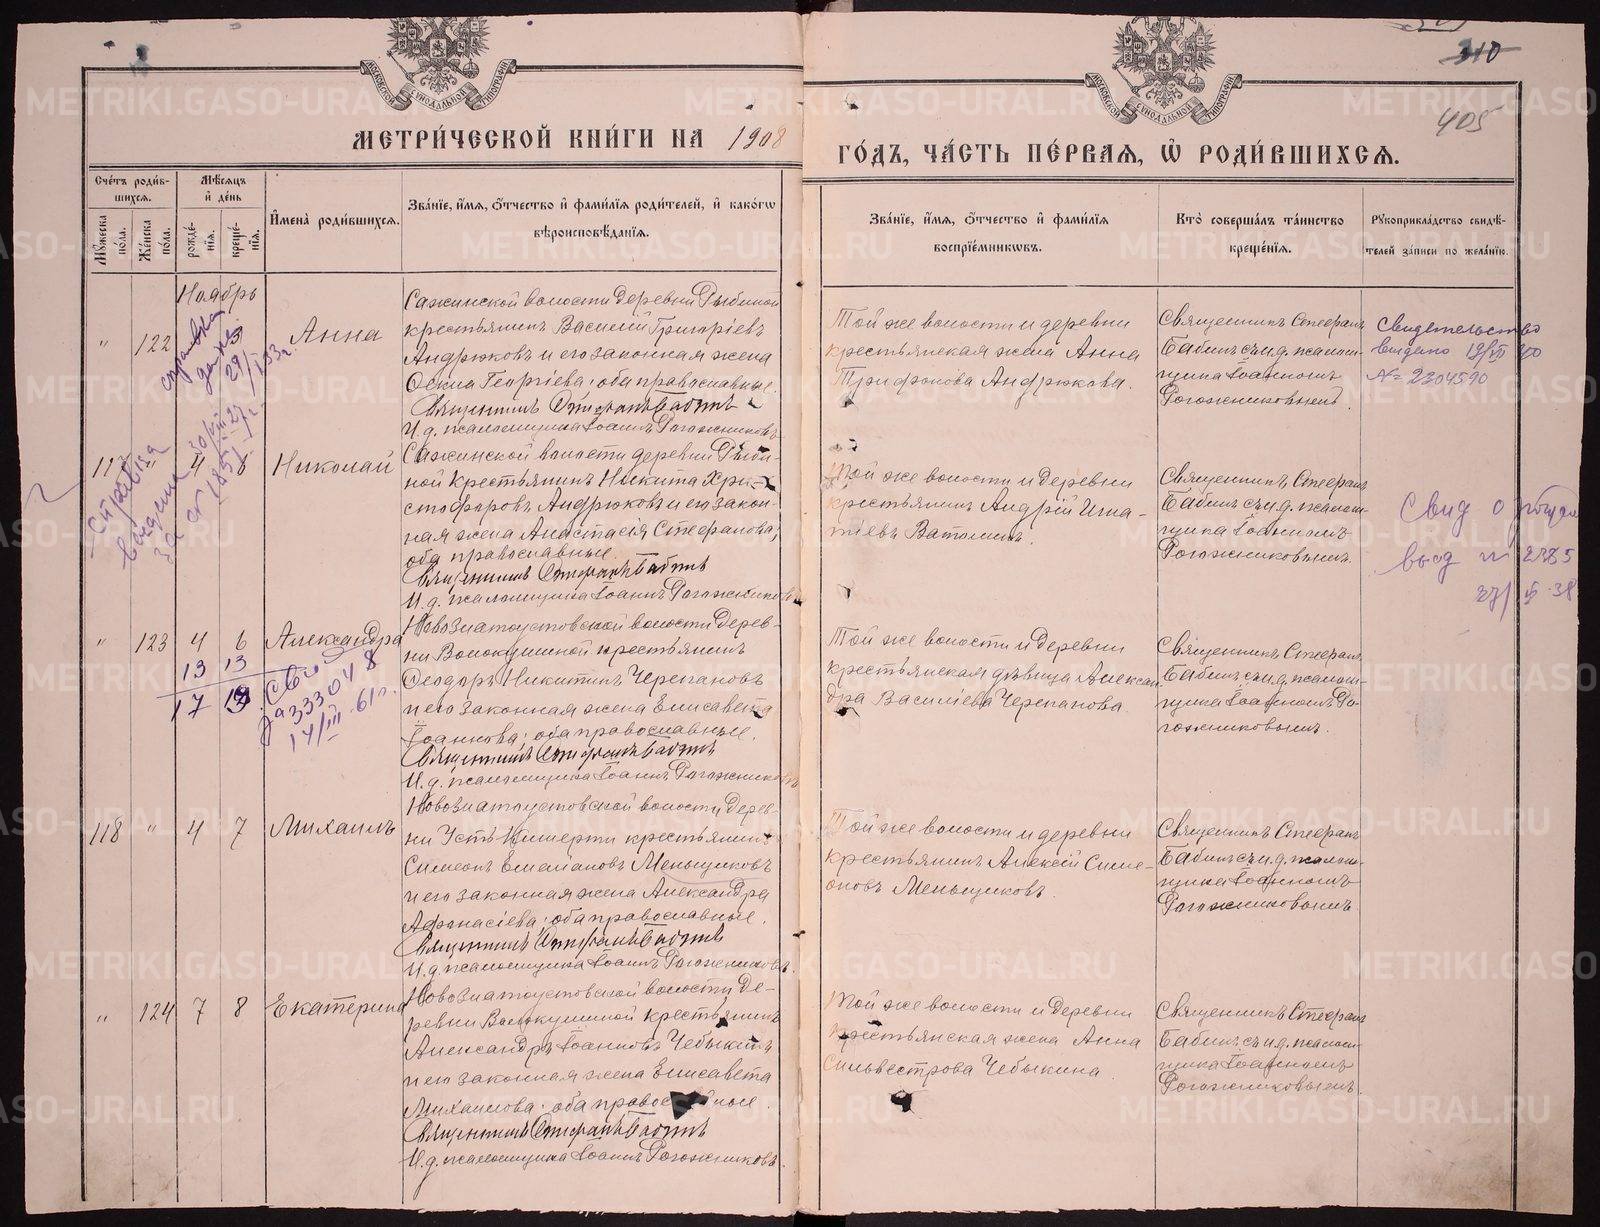 310
405
МОСКОВСКОЙ СѴНОДАЛЬНОЙ ТИПОГРАФИИ
МОСКОВСКОЙ СѴНОДАЛЬНОЙ ТИПОГРАФИИ
МЕТРИ́ЧЕСКОЙ КНИ́ГИ НА 1908
ГО́ДЪ, ЧА́СТЬ ПЕ́РВАЯ, Ѡ҆ РОДИ́ВШИХСЯ.
Сче́тъ роди́в-
шихся.
Мꙋ́жеска по́ла.
Же́нска по́ла.
Мѣ́сяцъ
и҆ де́нь
рожде́-
нїя.
креще́-
нїя.
И҆мена̀ роди́вшихся.
Зва́нїе, и҆́мя, ѻ҆́тчество и҆ фами́лїя роди́телей, и҆ како́гѡ
вѣроисповѣ́данїя.
Зва́нїе, и҆́мя, ѻ҆́тчество и҆ фами́лїя
воспрїе́мникѡвъ.
Кто̀ соверша́лъ та́инство
креще́нїя.
Рꙋкоприкла́дство свидѣ́-
телей за́писи по жела́нїю.
Ноябрь
" 122
Анна
Сажинской волости деревни Рыбиной
крестьянинъ Василій Григоріевъ
Андрюковъ и его законная жена
Георгіева; оба православные.
Священникъ Стефанъ Бабинъ
И.д. псаломщика Іоаннъ Рогожниковъ
Той же волости и деревни
крестьянская жена Анна
Трифонова Андрюкова.
Священникъ Стефанъ
Бабинъ съ и.д. псалом-
щика Іоанномъ
Рогожниковымъ.
Свидетельство
выдано
№ 2304590
справка
дана
117 " 4 6 Николай
Сажинской волости деревни Рыби-
ной крестьянинъ Никита Хри-
стофоровъ Андрюковъ и его закон-
ная жена Анастасія Стефанова;
оба православные.
Священникъ Стефанъ Бабинъ
И.д. псаломщика Іоаннъ Рогожниковъ
Той же волости и деревни
крестьянинъ Андрей Игна-
тіевъ Ватолинъ.
Священникъ Стефанъ
Бабинъ съ и.д. псалом-
щика Іоанномъ
Рогожниковымъ.
Справка
выдана
за №
Свид о
выд № 2385
" 123 4 6 Александра
13 13
17 19
Свид
за 333048
14/III 61г.
Новозлатоустовской волости дерев-
ни Волокушиной крестьянинъ
Ѳеодоръ Никитинъ Черепановъ
и его законная жена Елисавета
Іоаннова; оба православные.
Священникъ Стефанъ Бабинъ
И.д. псаломщика Іоаннъ Рогожниковъ
Той же волости и деревни
крестьянская дѣвица Алексан-
дра Василіева Черепанова.
Священникъ Стефанъ
Бабинъ съ и.д. псалом-
щика Іоанномъ Ро-
гожниковымъ.
118 " 4 7 Михаилъ
Новозлатоустовской волости дерев-
ни Усть-Кишерти крестьянинъ
Симеонъ Меньщиковъ
и его законная жена Александра
Афанасіева; оба православные.
Священникъ Стефанъ Бабинъ
И.д. псаломщика Іоаннъ Рогожниковъ.
Той же волости и деревни
крестьянинъ Алексій Симе-
оновъ Меньщиковъ.
Священникъ Стефанъ
Бабинъ съ и.д. псалом-
щика Іоанномъ
Рогожниковымъ
" 124 7 8 Екатерина
Новозлатоустовской волости де-
ревни Волокушиной крестьянинъ
Александръ Іоанновъ Чебыкинъ
и его законная жена Елисавета
Михаилова; оба православные.
Священникъ Стефанъ Бабинъ
И.д. псаломщика Іоаннъ Рогожниковъ.
Той же волости и деревни
крестьянская жена Анна
Сильвестрова Чебыкина
Священникъ Стефанъ
Бабинъ съ и.д. псалом-
щика Іоанномъ
Рогожниковымъ
METRIKI.GASO-URAL.RU